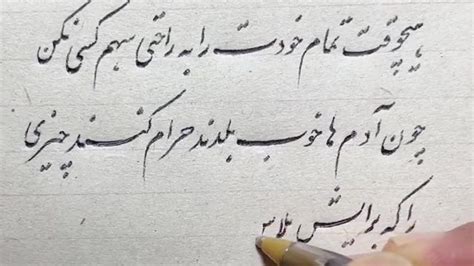 هیچوقت تمام خودت را به راحتی سهم کسی نکن
چون آدم ها خوب بلدند حرام کنند چیزی
را که برایش تلاش